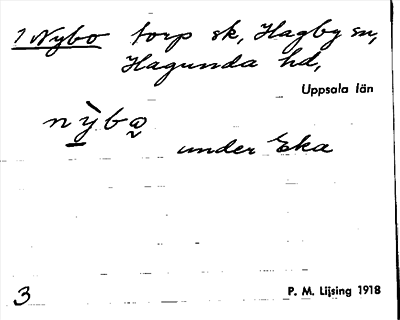 1 Nybo torp sk, Hagby sn,
Hagunda hd,
Uppsala län
nỳbo
under Eka
3
P. M. Lijsing 1918